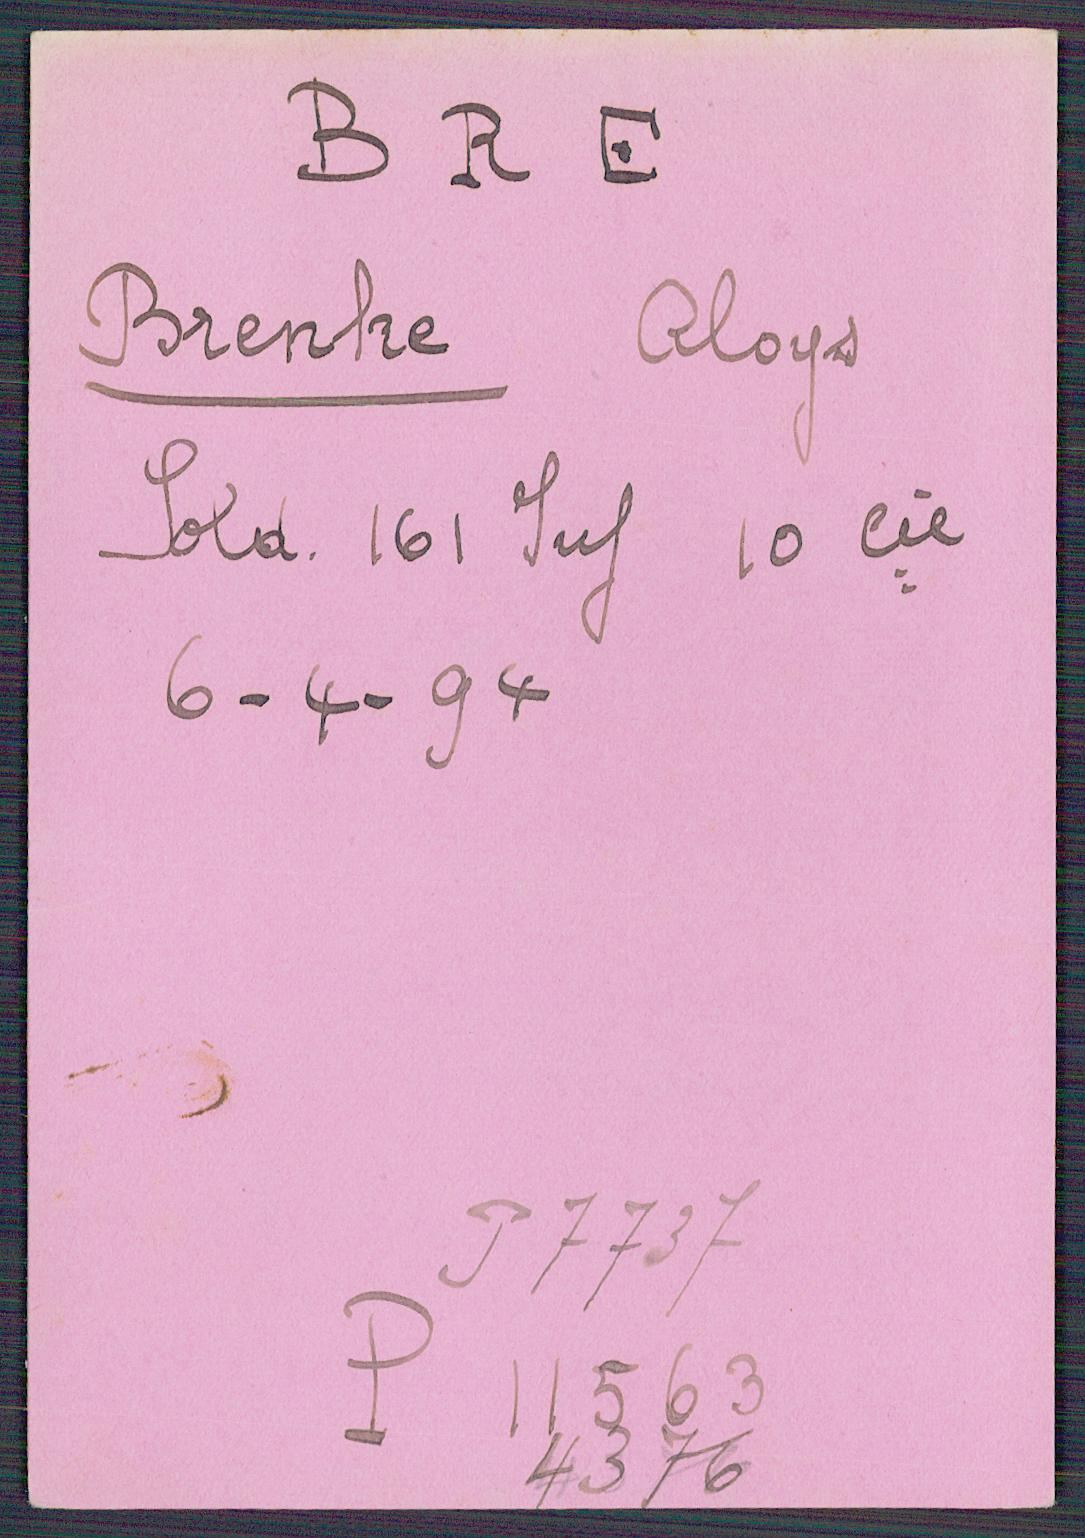 B R E
Brenke Aloys
Sold. 161 Inf 10 Cie
6-4-94
P 7737
P 11563
4376